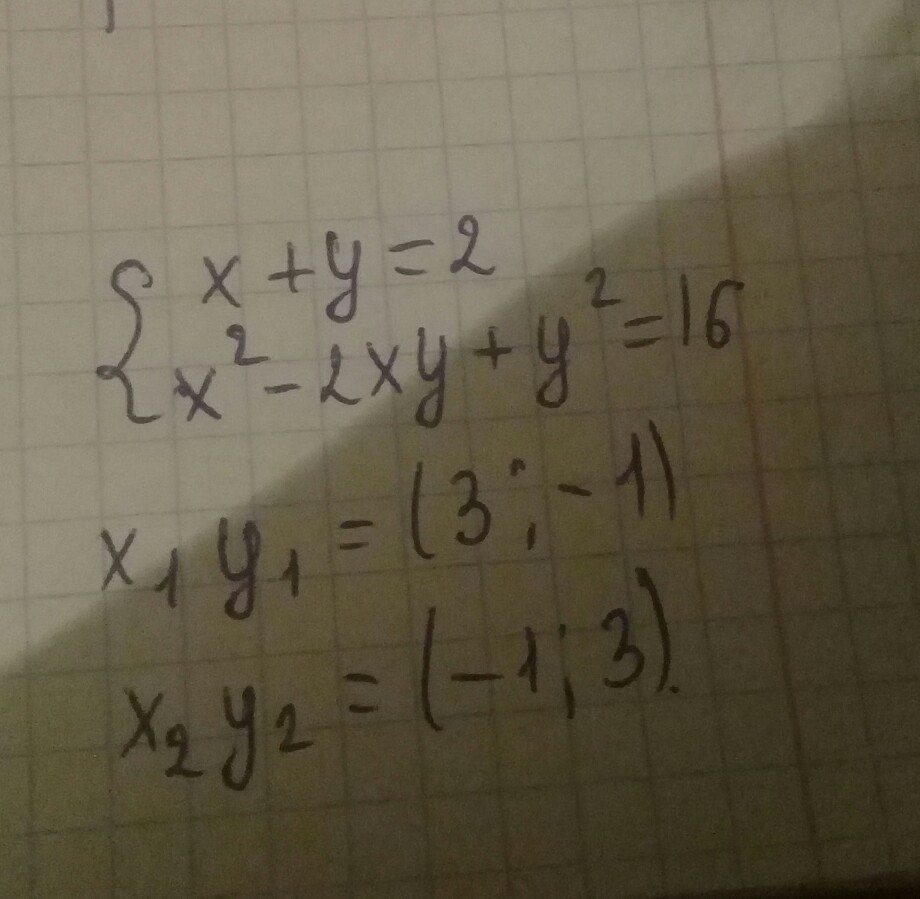 { x + y = 2
x² - 2xy + y² = 16
x₁ y₁ = (3 ; -1)
x₂ y₂ = (-1 ; 3).